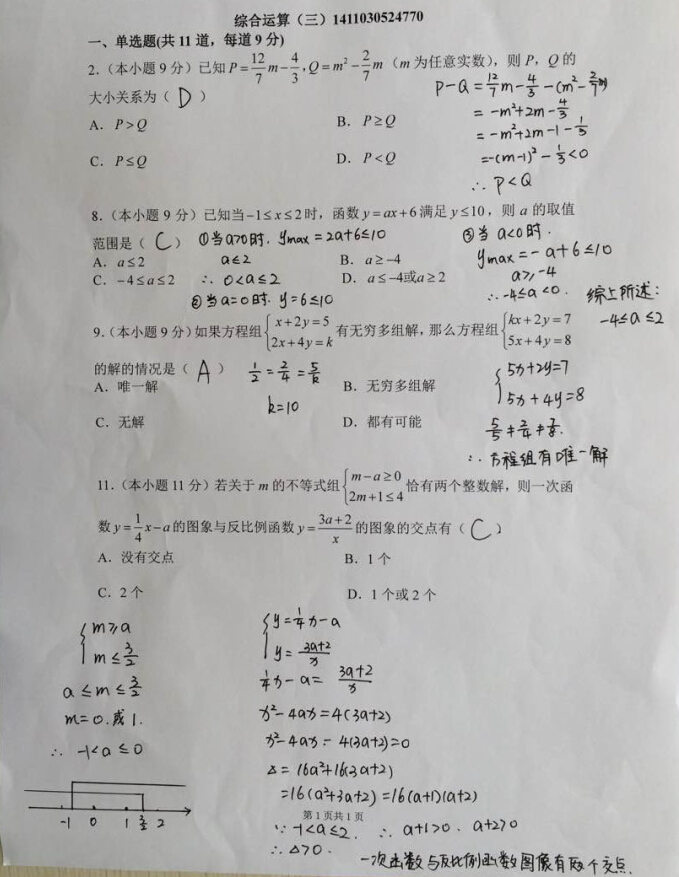 综合运算（三）1411030524770
一、单选题(共 11 道，每道 9 分)
2.（本小题 9 分）已知 P=12/7 m-4/3, Q=m²-2/7 m（m 为任意实数），则 P，Q 的
大小关系为（ D ）
A．P>Q B．P≥Q
C．P≤Q D．P<Q
P-Q=12/7 m-4/3-(m²-2/7 m)
=-m²+2m-4/3
=-m²+2m-1-1/3
=-(m-1)²-1/3<0
∴ P<Q
8.（本小题 9 分）已知当-1≤x≤2时，函数 y=ax+6 满足 y≤10，则 a 的取值
范围是（ C ）
A．a≤2 B．a≥-4
C．-4≤a≤2 D．a≤-4或a≥2
①当a>0时. ymax=2a+6≤10
a≤2
∴ 0<a≤2
②当a=0时. y=6≤10
③当 a<0时.
ymax=-a+6≤10
a≥-4
∴ -4≤a<0.
综上所述:
-4≤a≤2
9.（本小题 9 分）如果方程组{x+2y=5 2x+4y=k 有无穷多组解，那么方程组{kx+2y=7 5x+4y=8
的解的情况是（ A ）
A．唯一解 B．无穷多组解
C．无解 D．都有可能
1/2=2/4=5/k
k=10
{5x+2y=7
5x+4y=8
5/5≠2/4≠7/8.
∴ 方程组有唯一解
11.（本小题 11 分）若关于 m 的不等式组{m-a≥0 2m+1≤4 恰有两个整数解，则一次函
数 y=1/4 x-a 的图象与反比例函数 y=(3a+2)/x 的图象的交点有（ C ）
A．没有交点 B．1 个
C．2 个 D．1 个或 2 个
{m≥a
m≤3/2
a≤m≤3/2
m=0.或1.
∴ -1<a≤0
-1 0 1 3/2 2
{y=1/4 x-a
y=(3a+2)/x
1/4 x-a=(3a+2)/x
x²-4ax=4(3a+2)
x²-4ax-4(3a+2)=0
△=16a²+16(3a+2)
=16(a²+3a+2)=16(a+1)(a+2)
第 1 页共 1 页
∵ -1<a≤2. ∴ a+1>0. a+2>0
∴ △>0.
一次函数与反比例函数图像有两个交点.